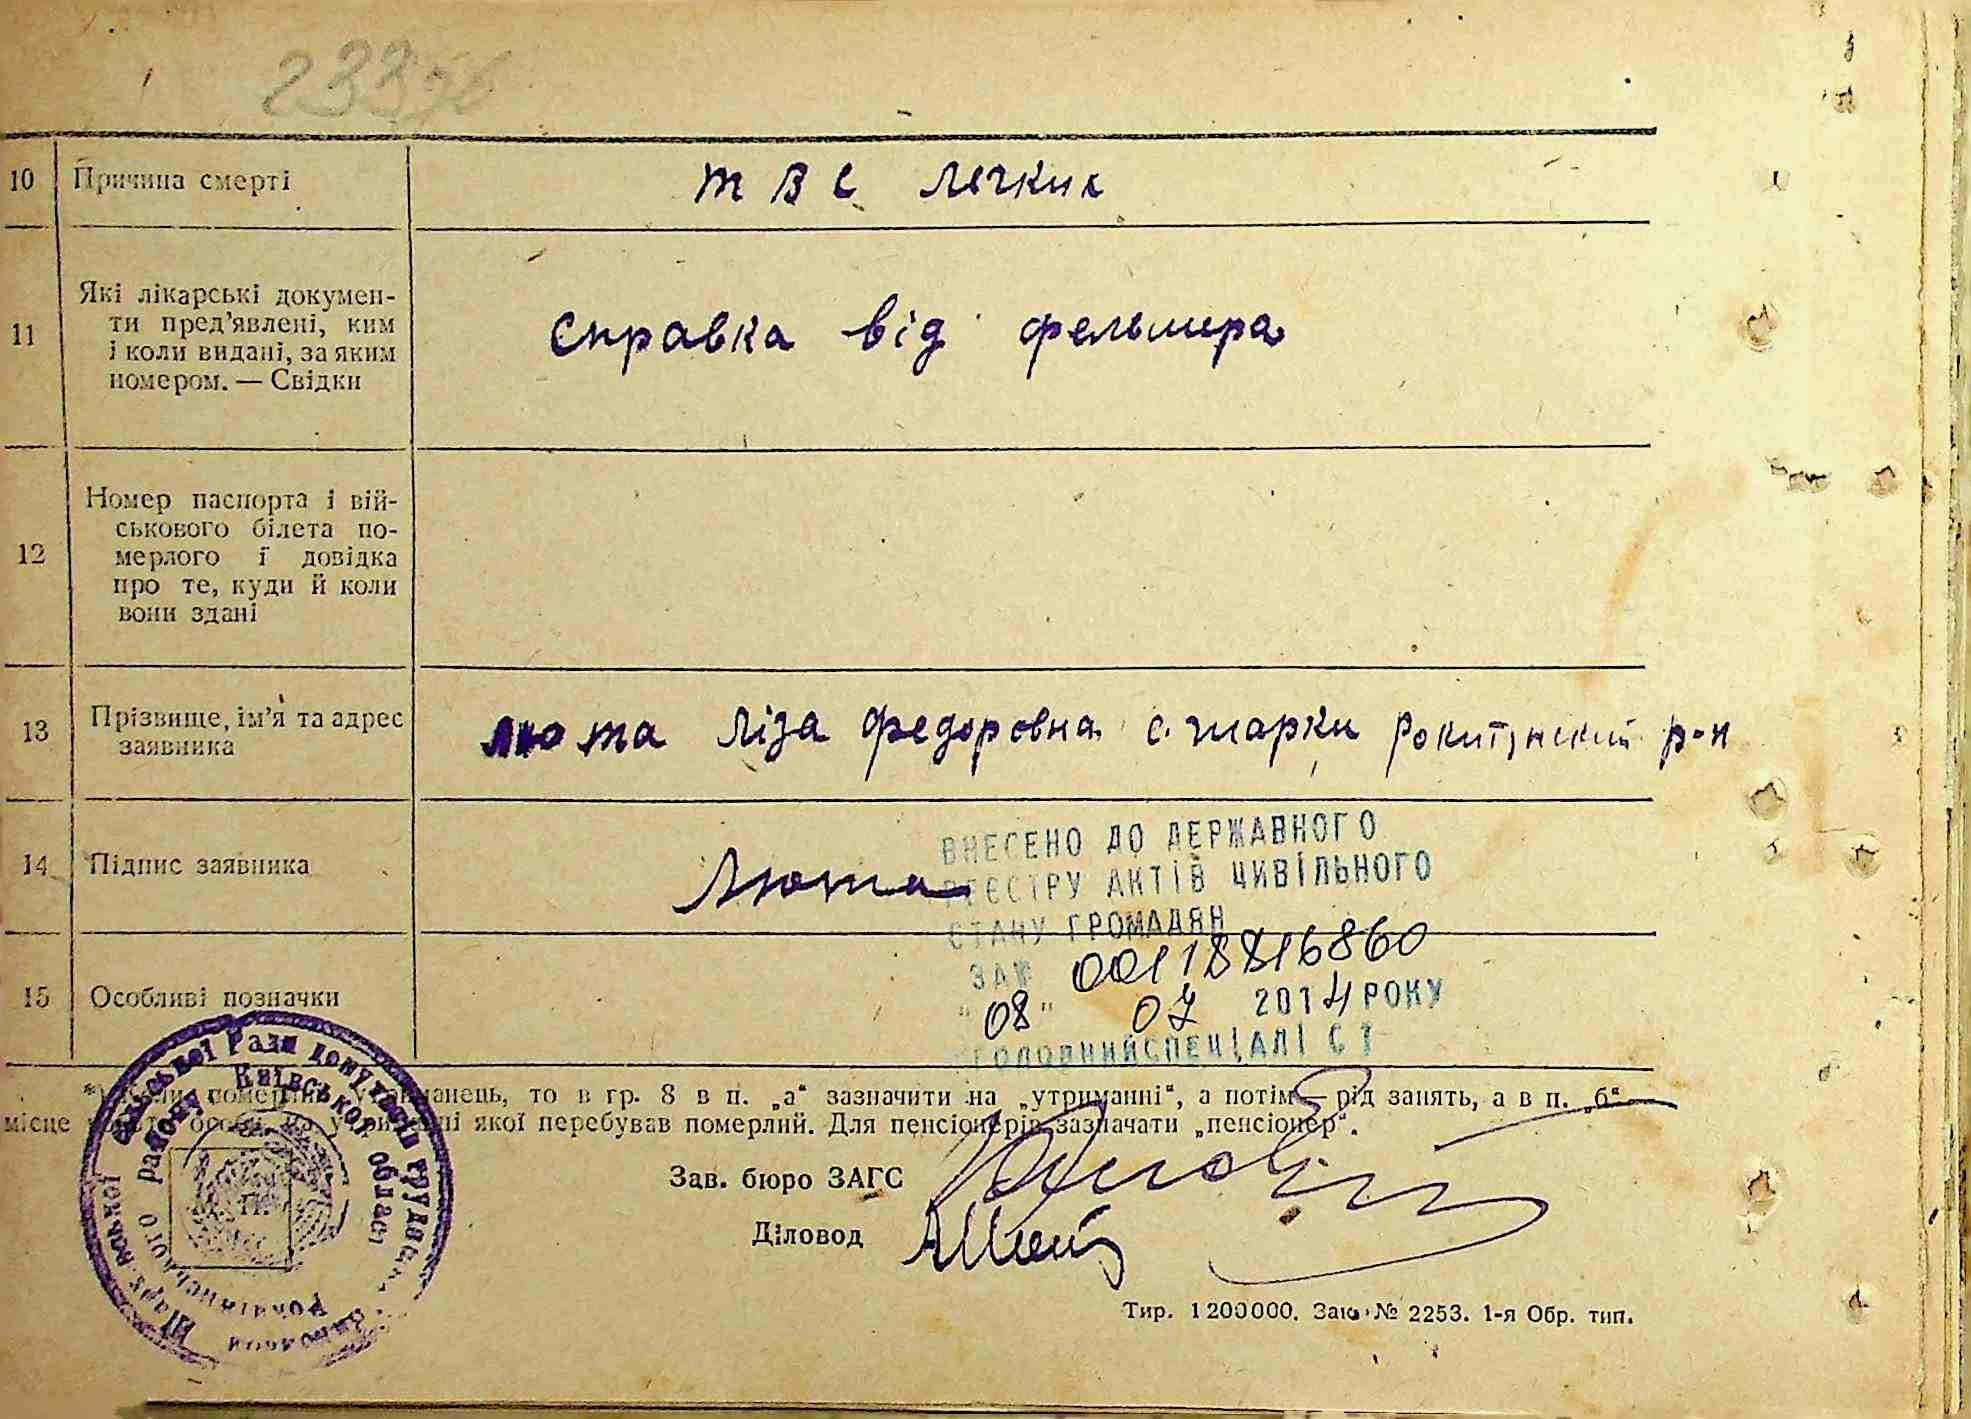 10 Причина смерті твс легких
11 Які лікарські докумен-
ти пред'явлені, ким
і коли видані, за яким
номером. — Свідки
Справка від фельшера
12 Номер паспорта і вій-
ськового білета по-
мерлого і довідка
про те, куди й коли
вони здані
13 Прізвище, ім'я та адрес
заявника
Люта Ліза Федоровна с. Шарки Рокитянский р-н
14 Підпис заявника Люта
ВНЕСЕНО ДО ДЕРЖАВНОГО
РЕЄСТРУ АКТІВ ЦИВІЛЬНОГО
СТАНУ ГРОМАДЯН
ЗА № 00118816860
"08" 07 2014 РОКУ
ГОЛОВНИЙ СПЕЦІАЛІСТ
15 Особливі позначки
*) Коли померлий утриманець, то в гр. 8 в п. „а“ зазначити на „утриманні“, а потім — рід занять, а в п. „б“ —
місце роботи особи, на утриманні якої перебував померлий. Для пенсіонерів зазначати „пенсіонер“.
Зав. бюро ЗАГС
Діловод
Тир. 1200000. Зак. № 2253. 1-я Обр. тип.
сільської Ради депутатів трудящих
району Київської області